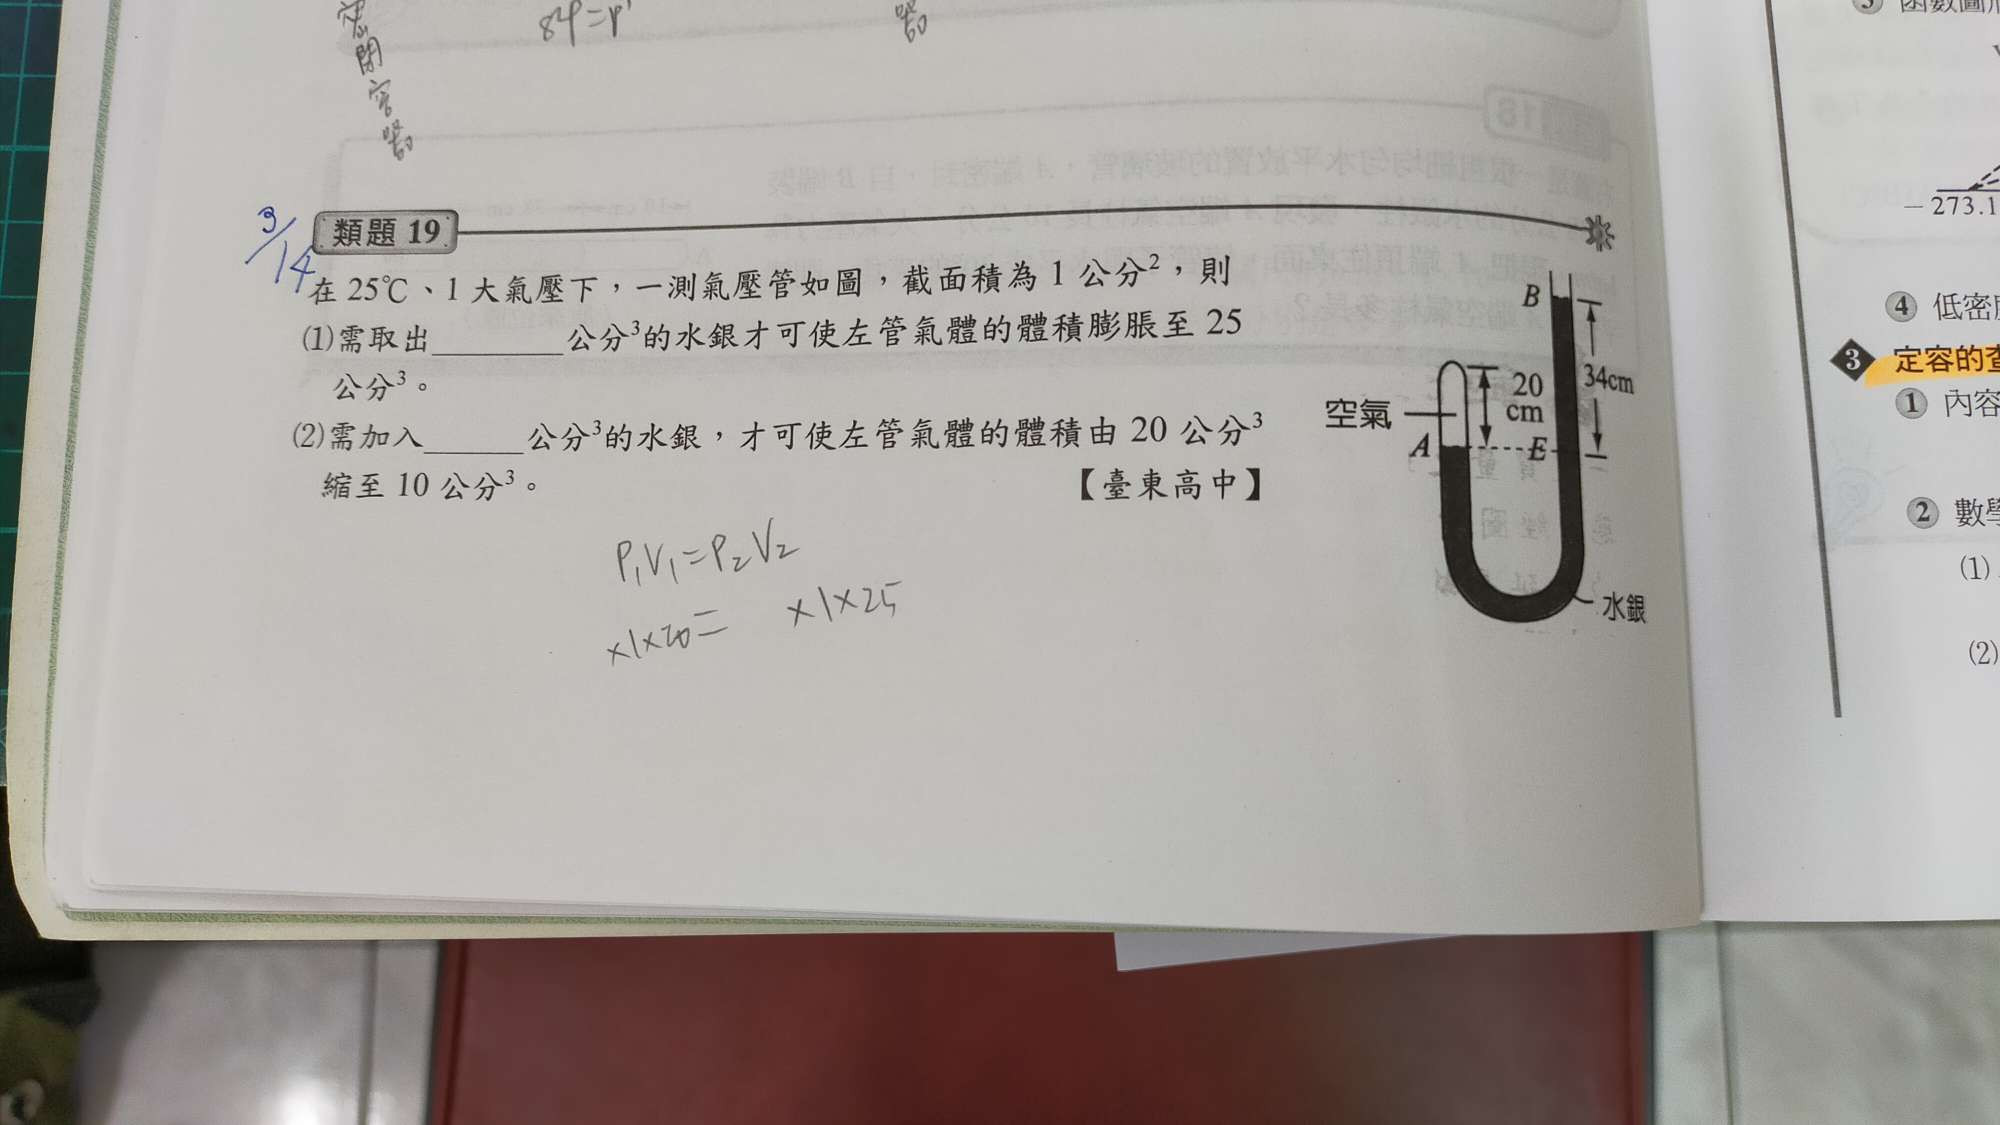 密閉容器
8P=P'
器
3/14
類題 19
在 25℃、1 大氣壓下，一測氣壓管如圖，截面積為 1 公分²，則
(1)需取出________公分³的水銀才可使左管氣體的體積膨脹至 25
公分³。
(2)需加入______公分³的水銀，才可使左管氣體的體積由 20 公分³
縮至 10 公分³。
【臺東高中】
B
34cm
20
cm
空氣
A
E
水銀
P₁V₁=P₂V₂
×1×20= ×1×25
－273.1
④ 低密
3 定容的
① 內容
② 數學
(1)
(2)